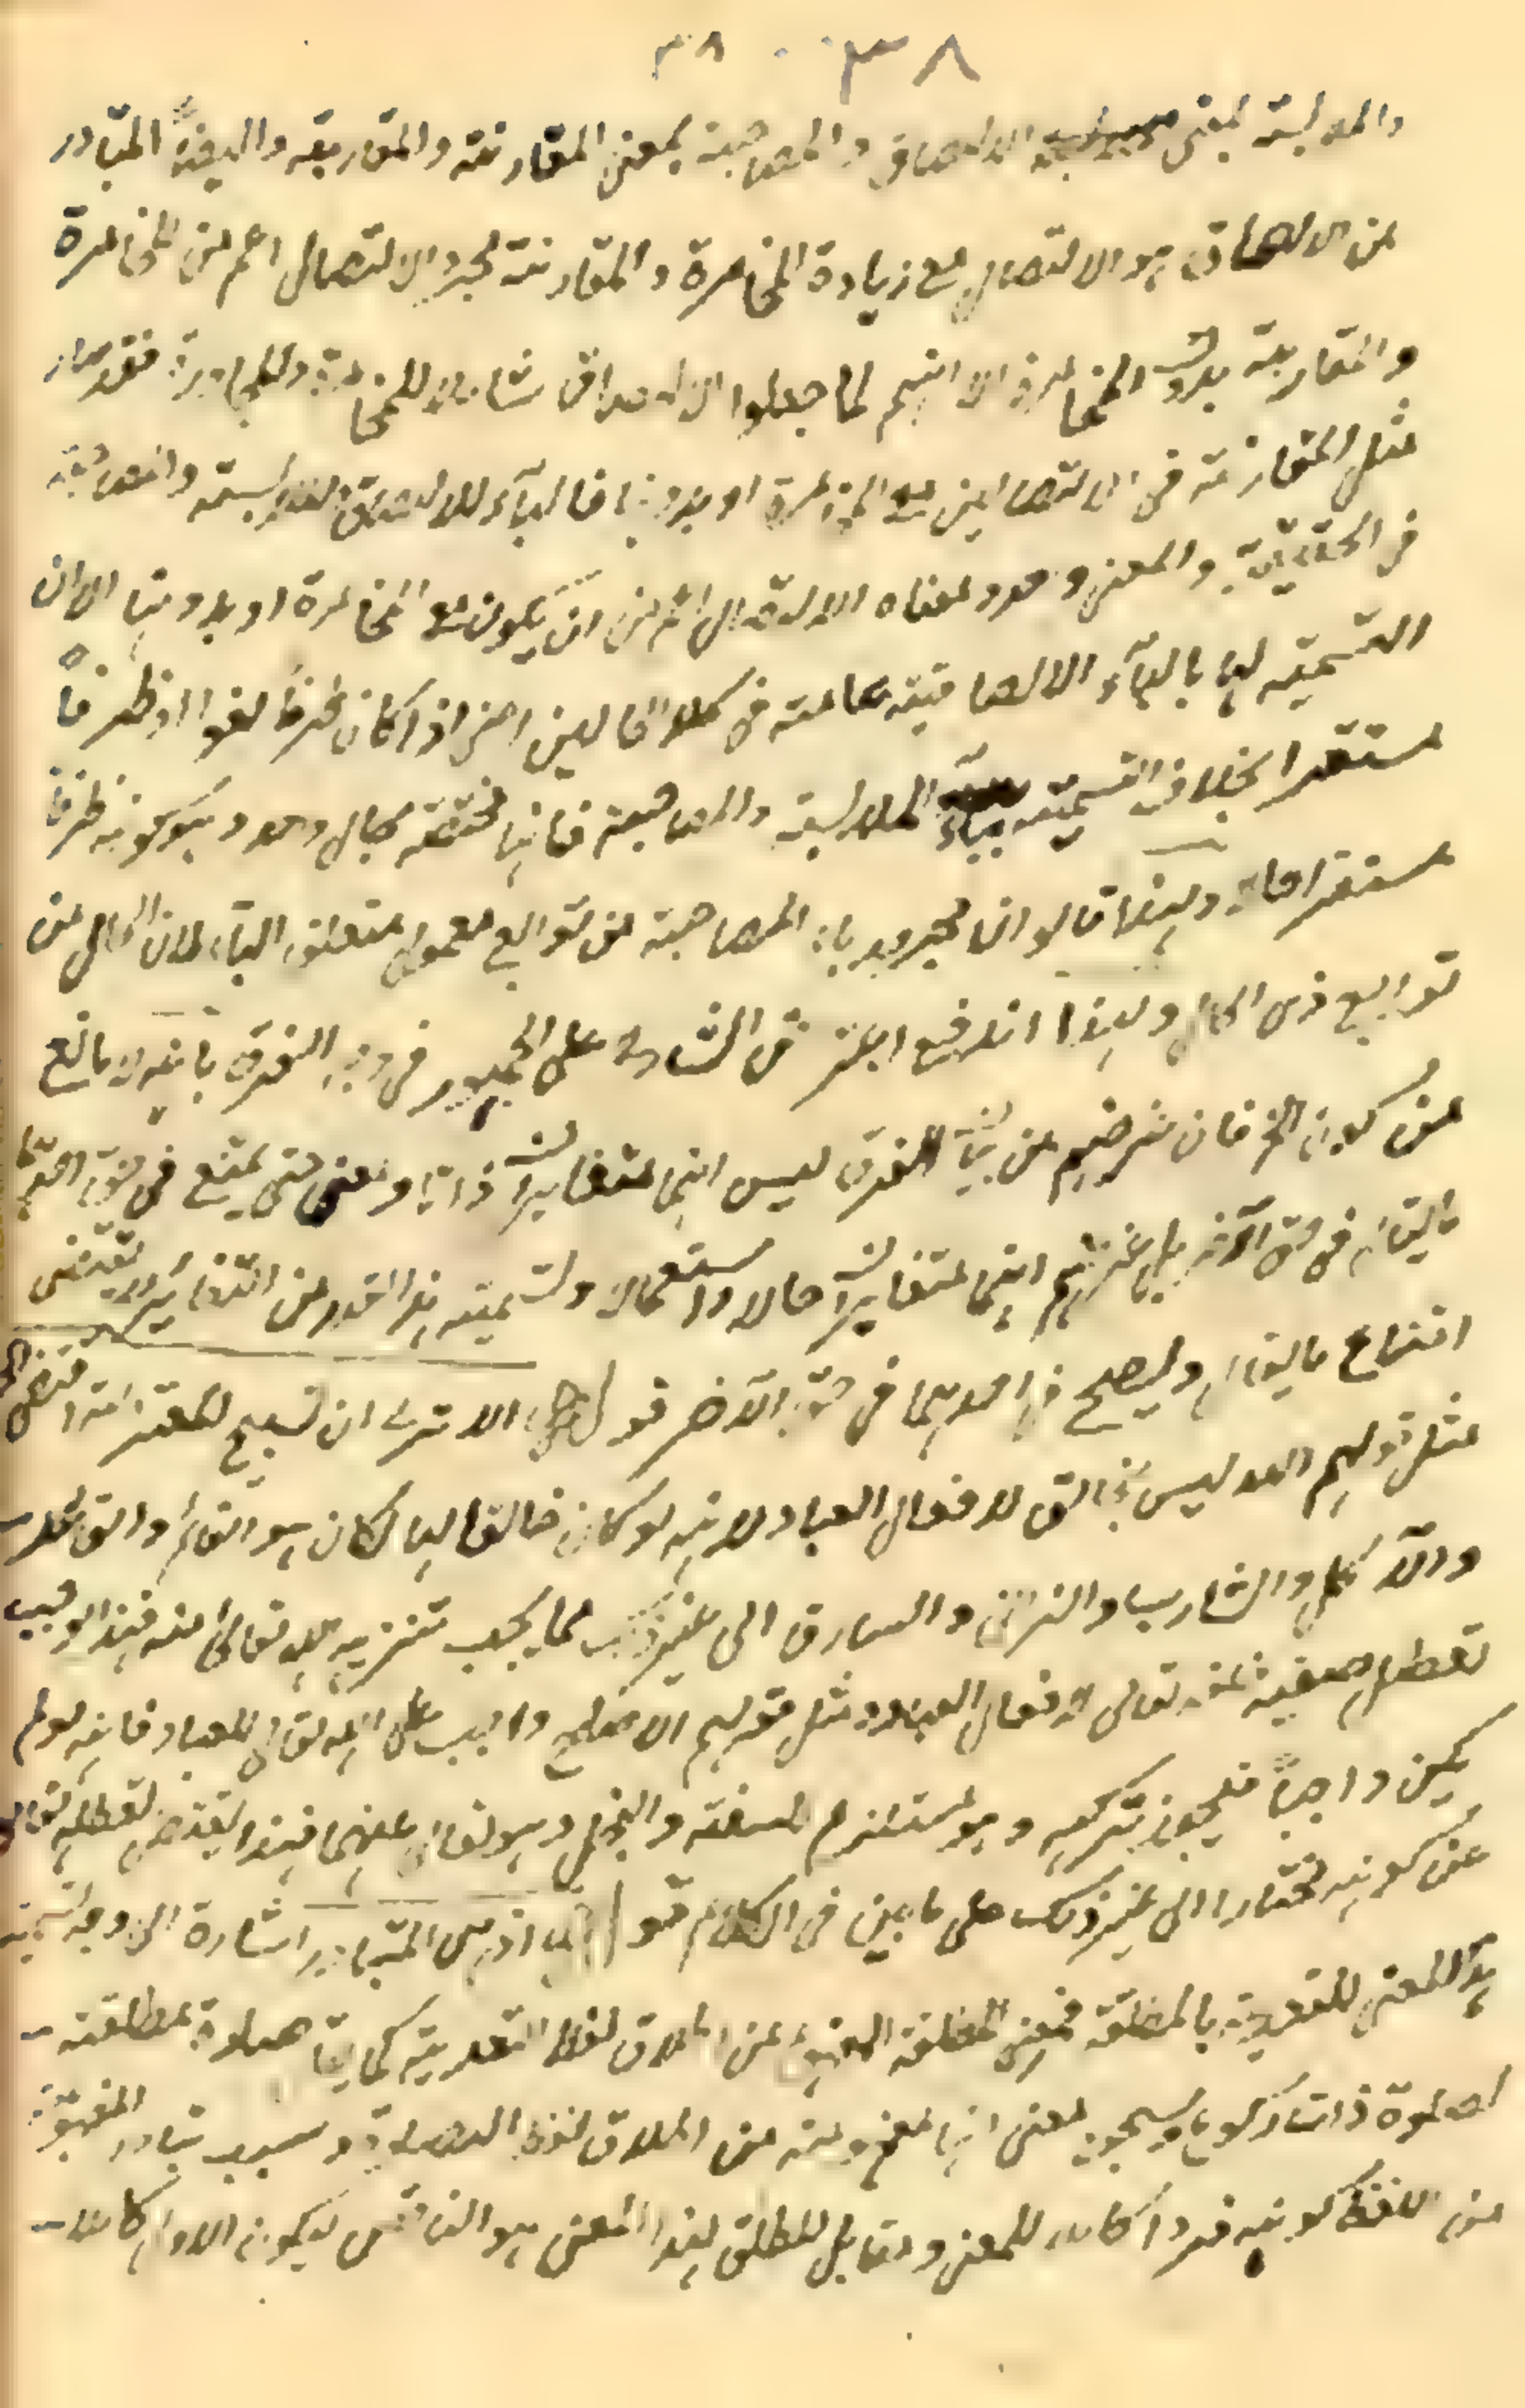 ٣٨ ٣٨
والملابسة بمعنى الالصاق والمصاحبة بمعنى المقارنة والمقاربة وايضاً المتبادر
من الالصاق هو الاتصال مع زيادة المخامرة والمقارنة مجرد الاتصال اعم من المخامرة
والمقاربة بدون المخامرة الا انهم لما جعلوا الالصاق شاملا للمخامرة والمجاورة فقد صار
مثل المقارنة في الاتصالين مع المخامرة او بدونها فالباء للالصاق والملابسة والمصاحبة
في الحقيقة والمعنى واحد ومعناه الاتصال اعم من ان يكون مع المخامرة او بدونها الا ان
التسمية لها بالباء الالصاقية عامة في كلا الحالين اعنى اذا كان ظرفاً لغوا او ظرفاً
مستقرا بخلاف التسمية بباء الملابسة والمصاحبة فانها مختصة بحال واحد وهو كونه ظرفاً
مستقرا حالا ولهذا قالوا ان مجرور باء المصاحبة من توابع معمول متعلق الباء لان الحال من
توابع ذى الحال ولهذا اندفع اعتراض الشارح على الجمهور في وجه الفرق بانه لا مانع
من كون الخ فان غرضهم من بيان الفرق ليس انهما متغايران ذاتا ومعنى حتى يمتنع في حق احدهما
ما يقال في حق الآخر بل غرضهم انهما متغايران حالا واستعمالا وتسمية وهذا القدر من التغاير لا يقتضى
امتناع ما يقال ويصح في احدهما في حق الآخر قوله الا ترى ان تسبيح المعتزلة اقتضى الخ
مثل قولهم الله ليس بخالق لافعال العباد لانه لو كان خالقا لها لكان هو القائم والقاعد
والآكل والشارب والزانى والسارق الى غير ذلك مما يجب تنزيه الله تعالى منه فهذا يوجب
تعطل صفته تعالى لافعال العباد ومثل قولهم الاصلح واجب على الله تعالى للعباد فانه لو لم
يكن واجباً فيجوز تركه وهو مستلزم للسفه والبخل وهو تعالى منزه عنهما فهذا يقتضى تعطله تعالى
عن كونه مختارا الى غير ذلك على ما بين في الكلام قوله اذ هى المتبادر اشارة الى وجه تسمية
هذا المعنى للتعدية بالمطلقة فمعنى المطلقة المفهوم من اطلاق لفظ التعدية كما يقال صلوة مطلقة
لصلوة ذات ركوع وسجود بمعنى انها مفهومة من اطلاق لفظ الصلوة وسبب تبادر المفهوم
من اللفظ كونه فردا كاملا للمعنى ومقابل المطلق بهذا المعنى هو الناقص ليكون الاول كاملا